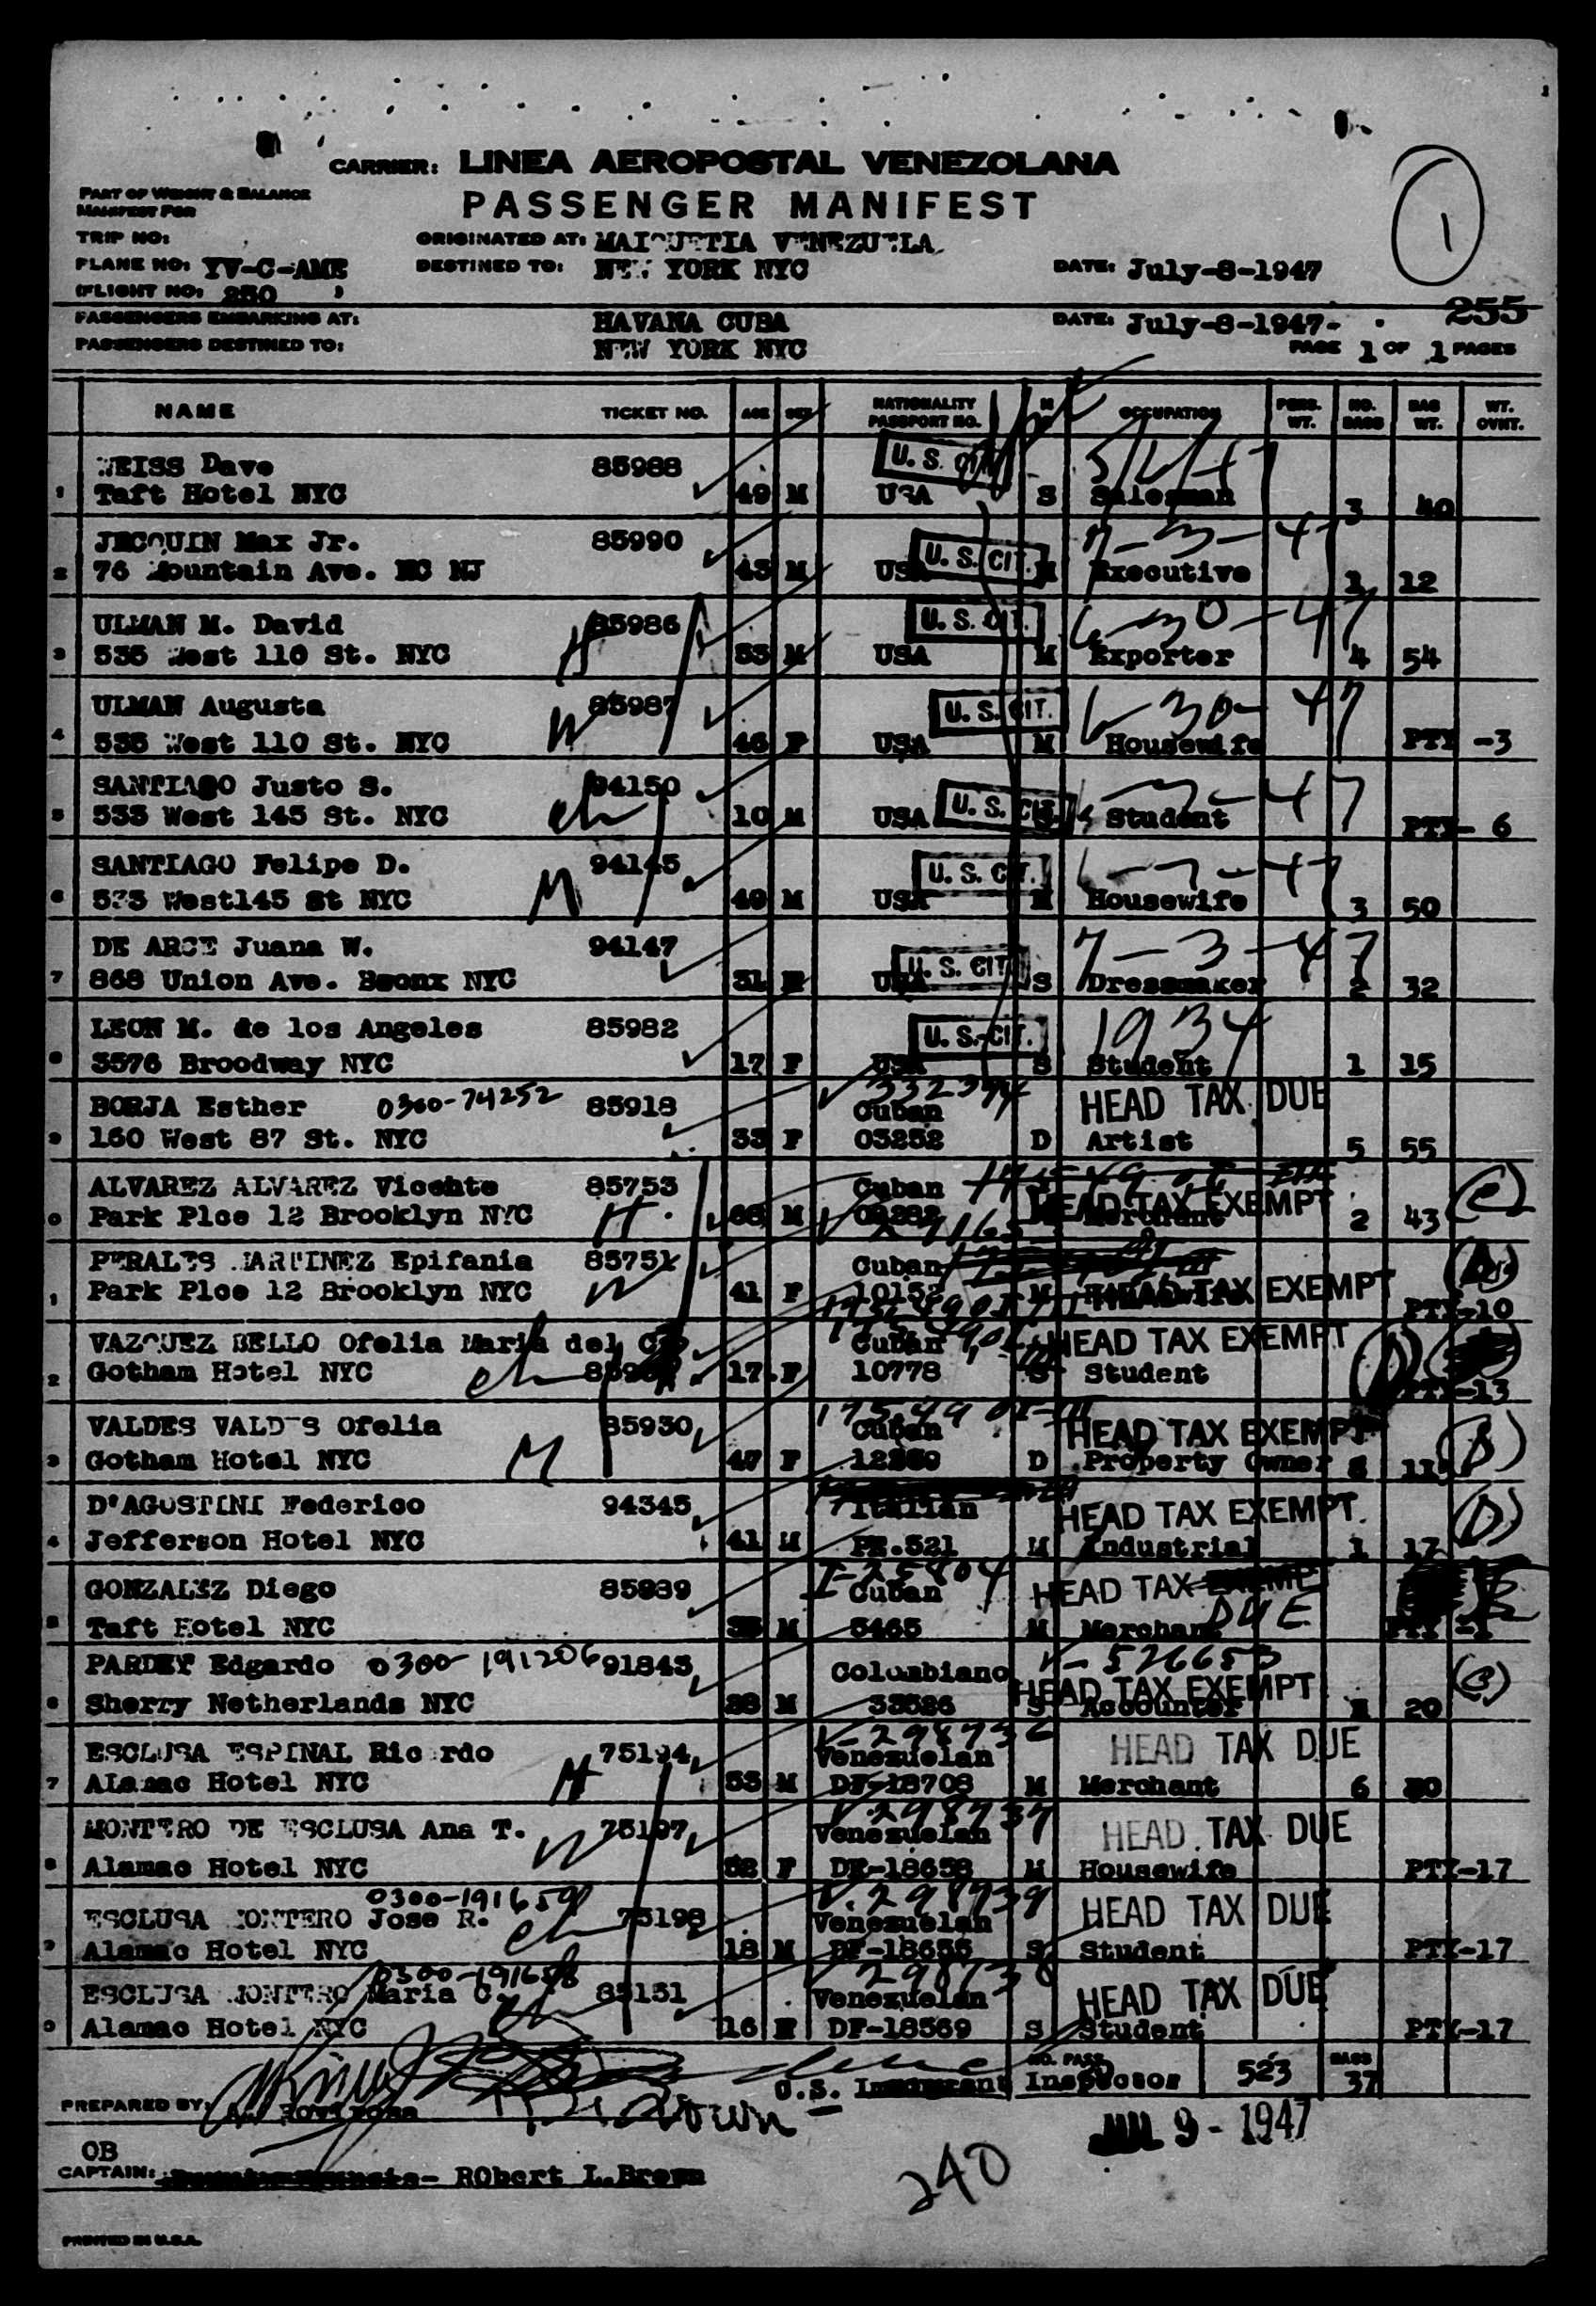 CARRIER: LINEA AEROPOSTAL VENEZOLANA
PART OF WEIGHT & BALANCE
MANIFEST FOR
PASSENGER MANIFEST
1
TRIP NO:
ORIGINATED AT: MAIQUETIA VENEZUELA
PLANE NO: YV-C-AME
DESTINED TO: NEW YORK NYC
DATE: July-8-1947
(FLIGHT NO: 250 )
255
PASSENGERS EMBARKING AT: HAVANA CUBA
DATE: July-8-1947-
PASSENGERS DESTINED TO: NEW YORK NYC
PAGE 1 OF 1 PAGES
NAME TICKET NO. AGE SEX NATIONALITY PASSPORT NO. M OCCUPATION PERS. WT. NO. BAGS BAG WT. WT. OVNT.
WEISS Dave 85988 U. S. CIT.
1 Taft Hotel NYC 49 M USA S Salesman 3 40
JECQUIN Max Jr. 85990 U. S. CIT. 7-3-47
2 76 Mountain Ave. NC NJ 43 M USA M Executive 1 12
ULMAN M. David H 85986 U. S. CIT. 6-30-47
3 535 West 110 St. NYC 53 M USA M Exporter 4 54
ULMAN Augusta W 85987 U. S. CIT. 6-30-47
4 535 West 110 St. NYC 46 F USA M Housewife PTY -3
SANTIAGO Justo S. ch 94150 U. S. CIT. 6-7-47
5 533 West 145 St. NYC 10 M USA S Student PTY- 6
SANTIAGO Felipe D. M 94145 U. S. CIT. 6-7-47
6 533 West145 St NYC 49 M USA M Housewife 3 50
DE ARCE Juana W. 94147 U. S. CIT. 7-3-47
7 868 Union Ave. Bronx NYC 31 USA S Dressmaker 2 32
LEON M. de los Angeles 85982 U. S. CIT. 1934
8 3576 Broodway NYC 17 F USA S Student 1 15
BORJA Esther 0300-74252 85918 Cuban HEAD TAX DUE
9 160 West 87 St. NYC 33 F 03252 D Artist 5 55
ALVAREZ ALVAREZ Vicente 85753 Cuban HEAD TAX EXEMPT
0 Park Plce 12 Brooklyn NYC H. M Merchant 2 43
PERALES MARTINEZ Epifania 85751 Cuban
1 Park Plce 12 Brooklyn NYC W 41 F 10152 M HEAD TAX EXEMPT PTY-10
VAZQUEZ BELLO Ofelia Maria del Cuban HEAD TAX EXEMPT
2 Gotham Hotel NYC ch 17 F 10778 S Student PTY-13
VALDES VALDES Ofelia 85930 Cuban HEAD TAX EXEMPT
3 Gotham Hotel NYC M 47 F D Property Owner
D'AGOSTINI Federico 94345 Italian HEAD TAX EXEMPT
4 Jefferson Hotel NYC 41 M PE.521 M Industrial 1 17
GONZALEZ Diego 85939 I-25804 Cuban HEAD TAX DUE
5 Taft Hotel NYC M 5465 M Merchant
PARDEY Edgardo 0300-191206 91843 Colombiano V-526653
6 Sherry Netherlands NYC 28 M 33526 S HEAD TAX EXEMPT 20
ESCLUSA ESPINAL Ricardo 75194 V-298736 Venezuelan HEAD TAX DUE
7 Alamac Hotel NYC H 53 M DF-18703 M Merchant 6 80
MONTERO DE ESCLUSA Ana T. W 75197 V-298737 Venezuelan HEAD TAX DUE
8 Alamac Hotel NYC 52 F DF-18658 M Housewife PTY-17
0300-191659
ESCLUSA MONTERO Jose R. ch 75198 Venezuelan HEAD TAX DUE
9 Alamac Hotel NYC 18 M DF-18655 S Student PTY-17
0300-191658
ESCLUSA MONTERO Maria C. ch 85151 Venezuelan HEAD TAX DUE
0 Alamac Hotel NYC 16 DF-18569 S Student PTY-17
U.S. Immigrant Inspector NO. PASS 523 BAGS 37
PREPARED BY:
JUL 9 - 1947
OB
CAPTAIN: - RObert L.Brown
240
PRINTED IN U.S.A.